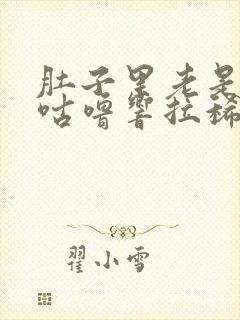 肚子里老是
咕噜响拉稀
翟小雪